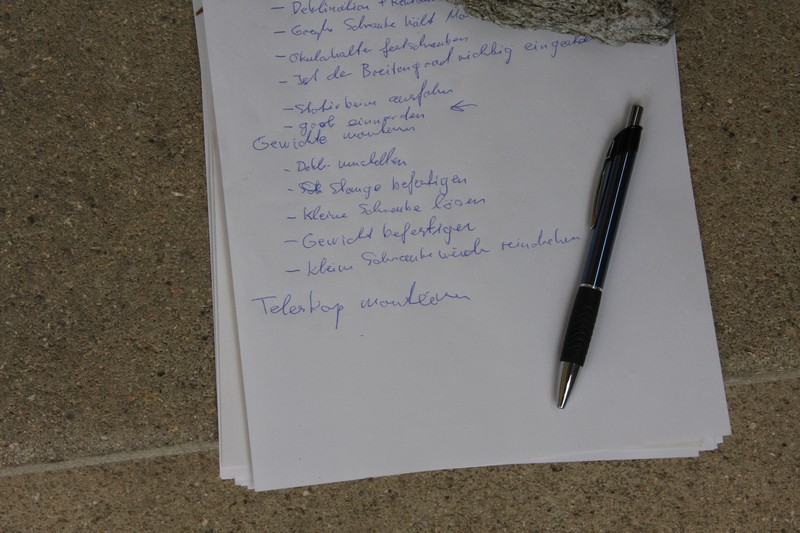 - Deklination +
- Große Schraube hält
- Okularhalter festschrauben
- Ist der Breitengrad richtig eingestellt
- Stativbeine ausfahren
- grob einnorden ←
Gewichte montieren
- Dekl. umstellen
- Stange befestigen
- Kleine Schraube lösen
- Gewicht befestigen
- kleine Schraube wieder reindrehen
Teleskop montieren